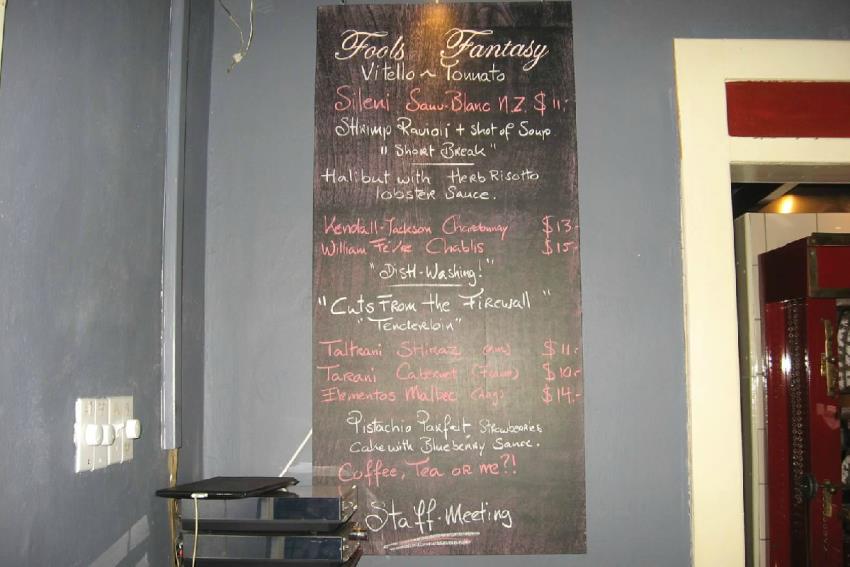 Fools Fantasy
Vitello ~ Tonnato
Sileni Sauv-Blanc N.Z. $11.-
Shrimp Ravioli + shot of Soup
"Short Break"
Halibut with Herb Risotto
lobster Sauce.
Kendall-Jackson Chardonnay $13-
William Fèvre Chablis $15-
"Dish-Washing!"
"Cuts From the Firewall"
"Tenderloin"
Taltrani Shiraz $11.-
Tarani Cabernet $10.-
Elementos Malbec (Arg) $14.-
Pistachio Parfait Strawberries
Cake with Blueberry Sauce.
Coffee, Tea or me?!
Staff-Meeting